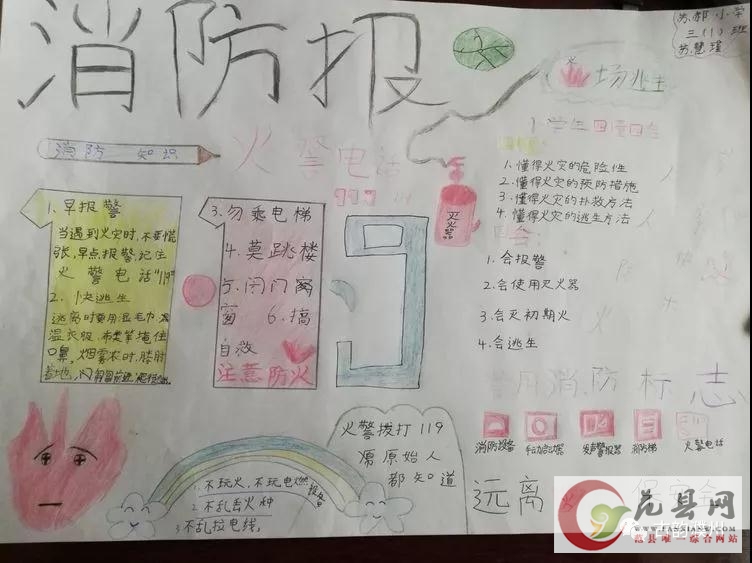 消防报
苏郝小学
三(1)班
苏慧瑾
消防知识
火警电话
119
场逃生
1.学生四懂四会
1.懂得火灾的危险性
2.懂得火灾的预防措施
3.懂得火灾的扑救方法
4.懂得火灾的逃生方法
四会:
1.会报警
2.会使用灭火器
3.会灭初期火
4.会逃生
灭火器
1.早报警
当遇到火灾时,不要慌
张,早点报警,记住
火警电话"119"
2.快逃生
逃离时要用湿毛巾,
湿衣服,布类等捂住
口鼻,烟雾浓时,膝肘
着地,
3.勿乘电梯
4.莫跳楼
5.闭门窗
窗 6.搞
自救
注意防火
常用消防标志
消防设备
手动启动器
发声警报器
消防梯
火警电话
火警拨打119
原始人
都知道
1.不玩火、不玩电燃设备
2.不乱丢火种
3.不乱拉电线,
远离火
保安全
范县网
WWW.FANXIANW.COM
范县唯一综合网站